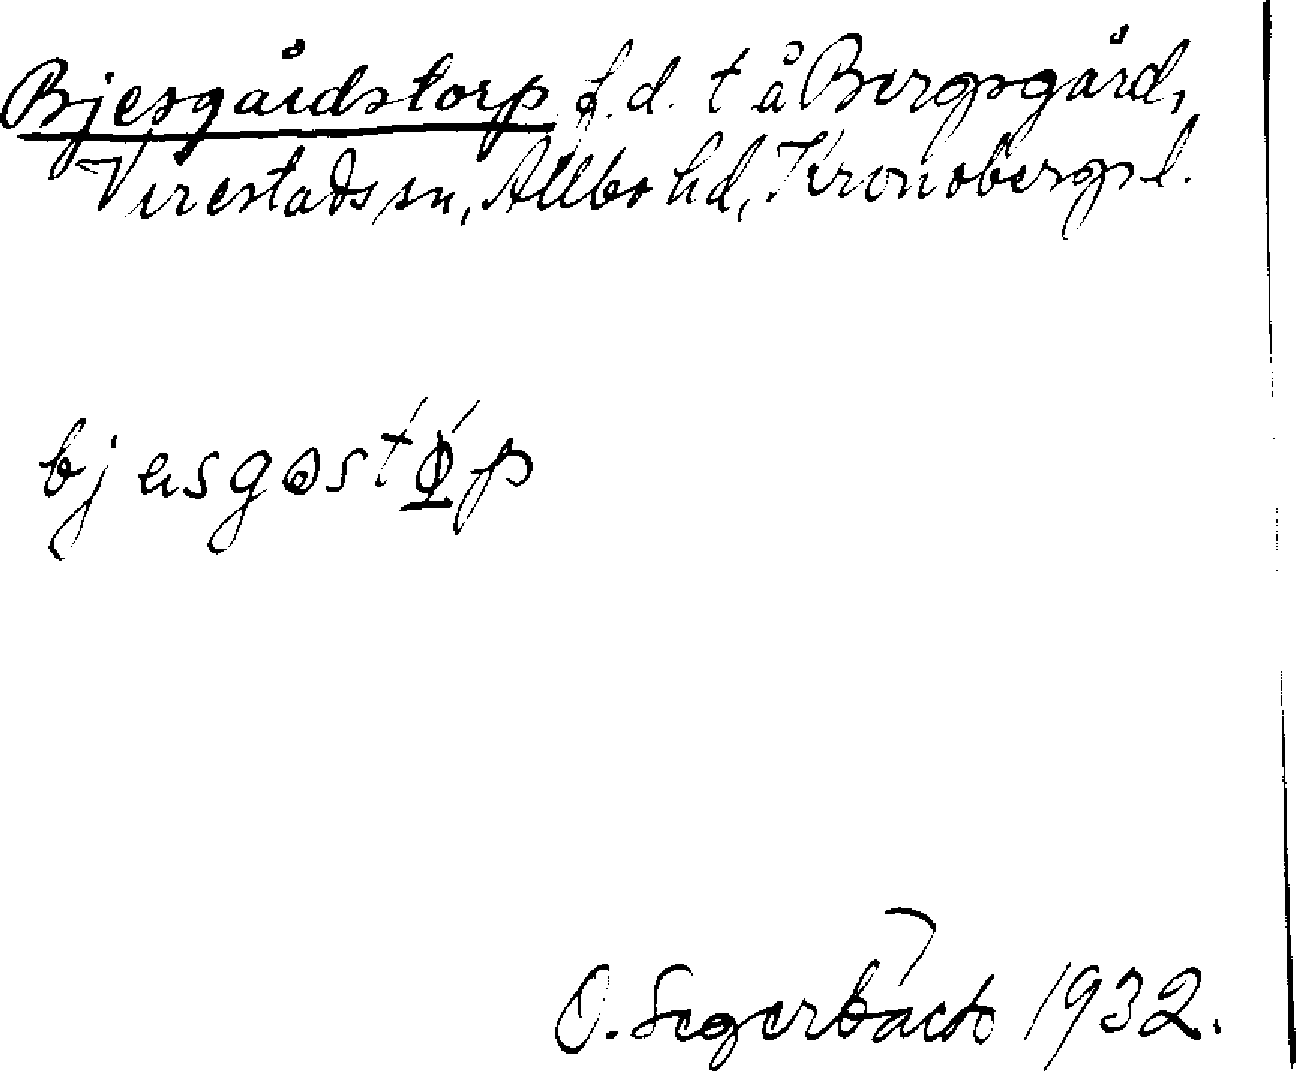 Bjesgårdstorp f.d. t å Bergsgård,
Virestads sn, Allbo hd, Kronobergs l.
bjesgøstǿp
O. Segerbäck 1932.